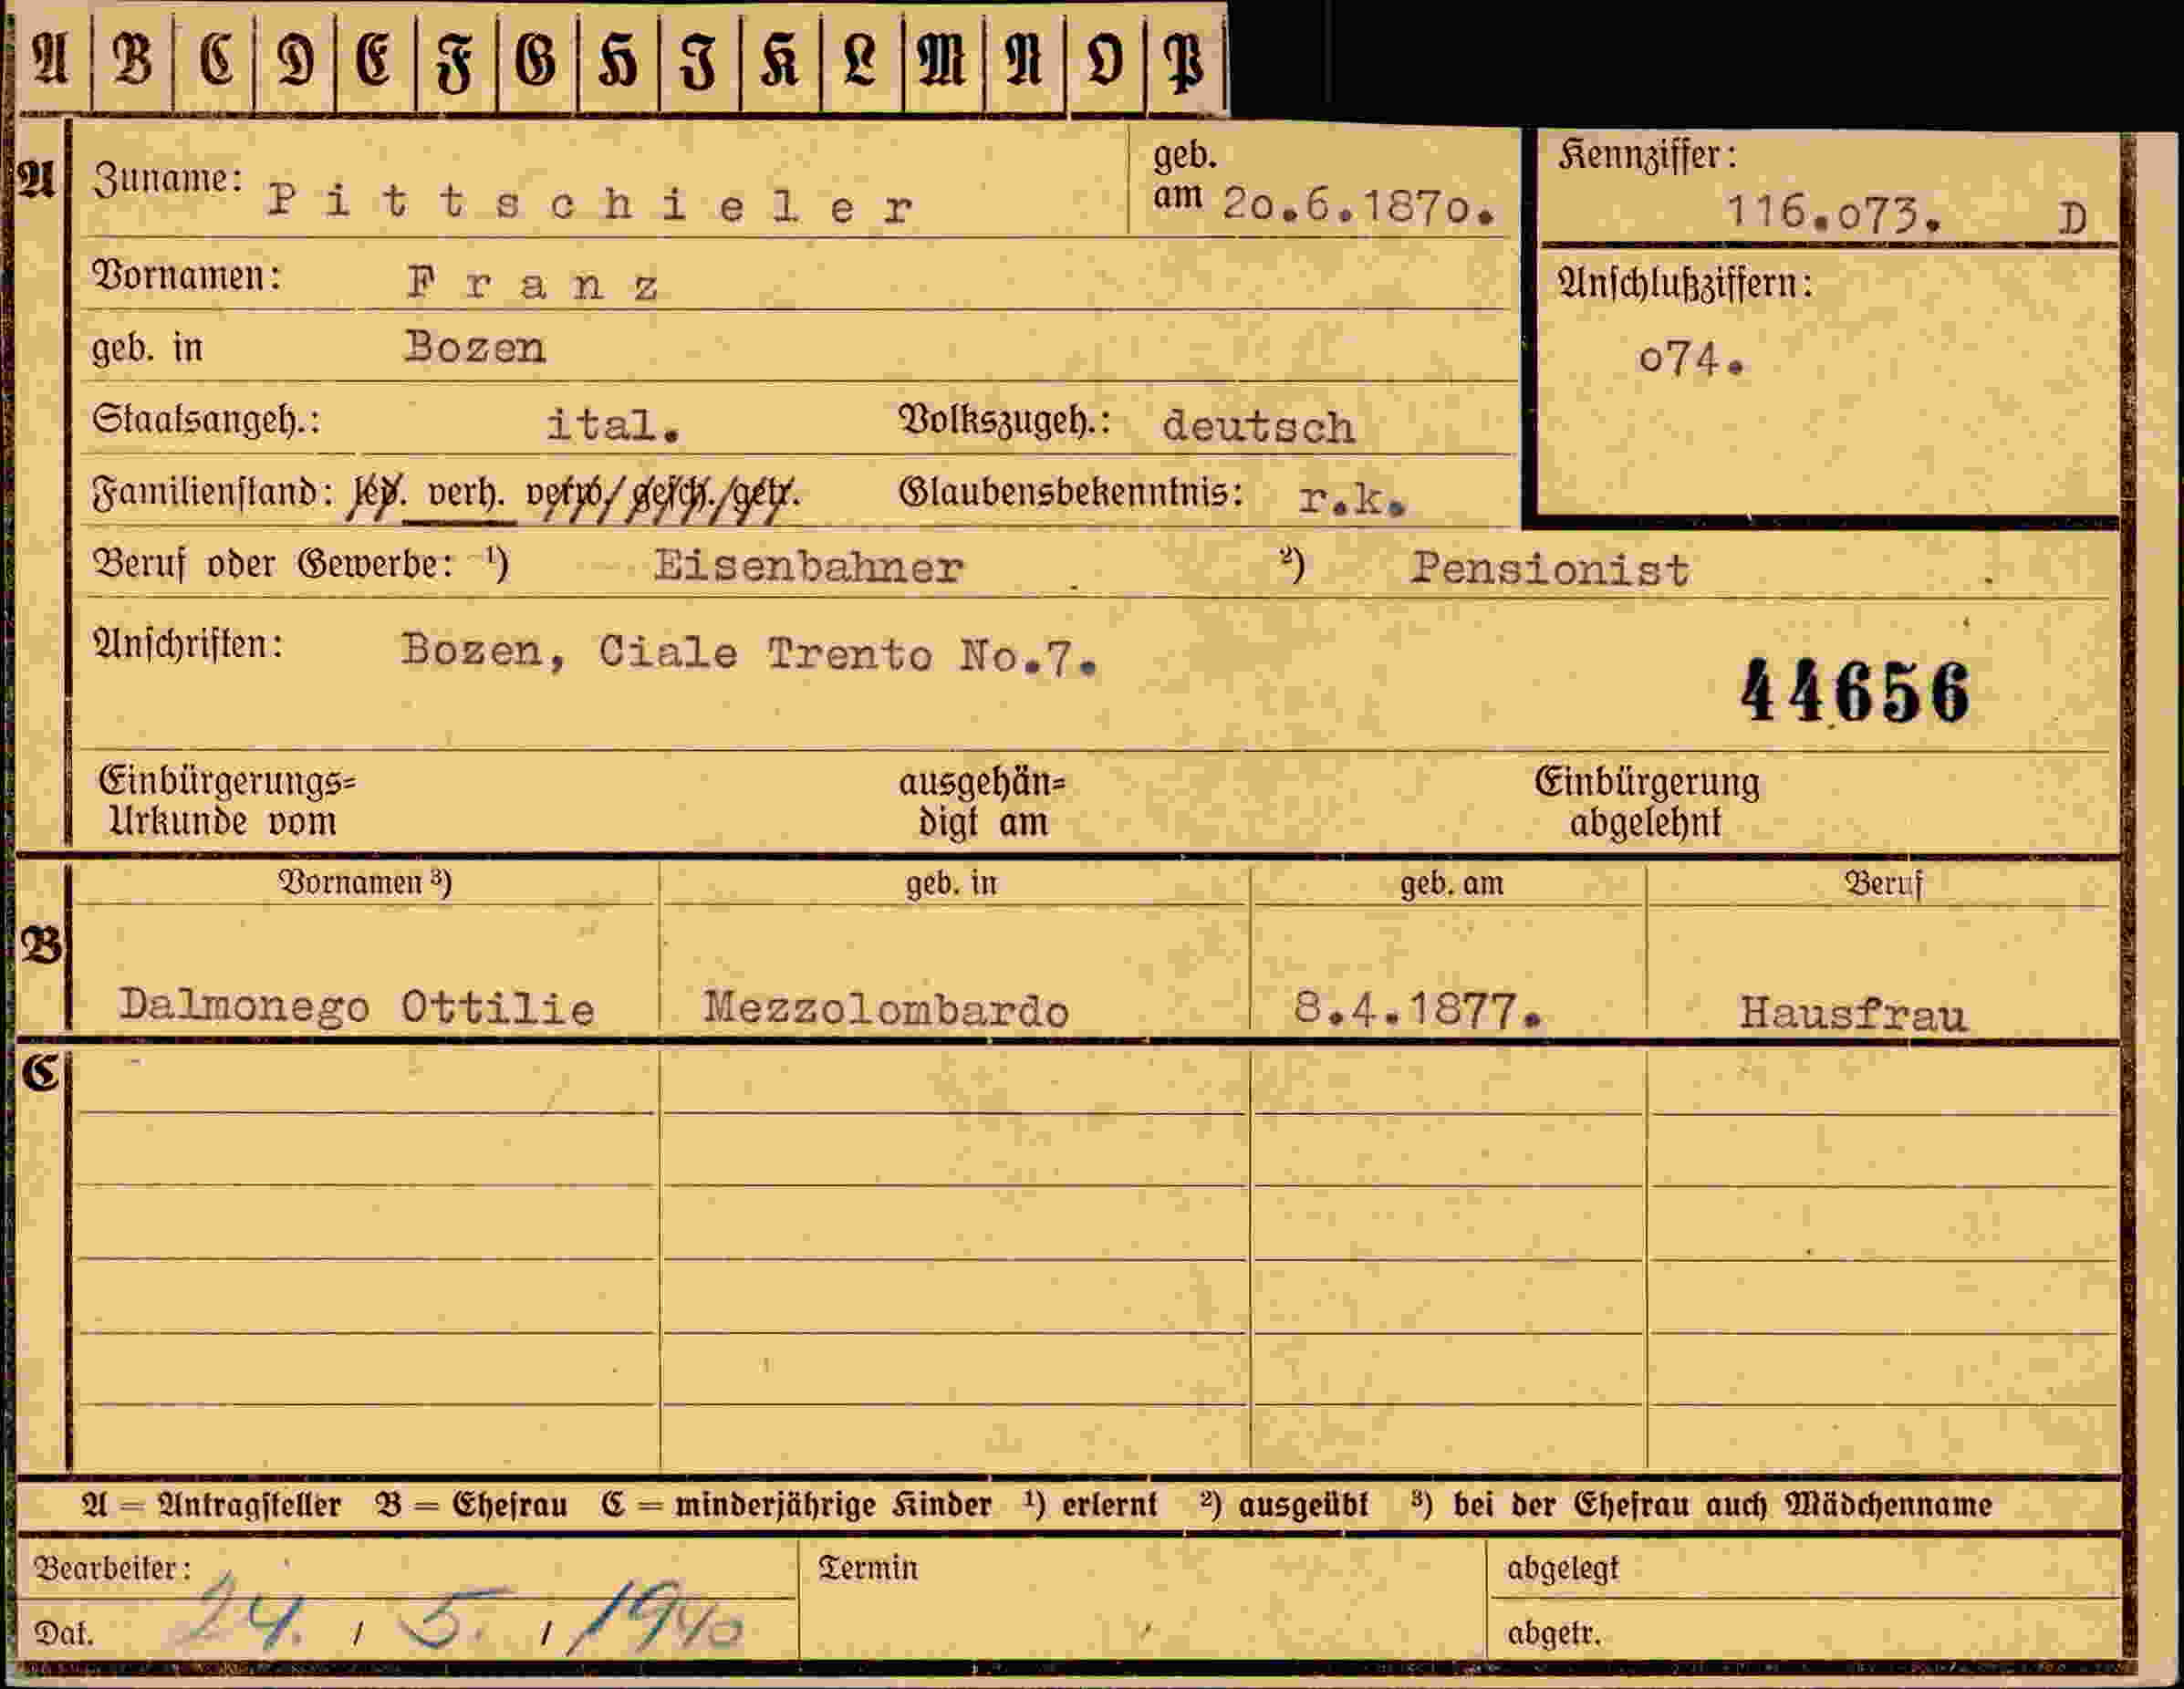 A B C D E F G H I K L M N O P
A Zuname: Pittschieler geb. am 20.6.1870. Kennziffer: 116.073. D
Vornamen: Franz
Anschlußziffern:
geb. in Bozen
074.
Staatsangeh.: ital. Volkszugeh.: deutsch
Familienstand: led. verh. verw. gesch. getr. Glaubensbekenntnis: r.k.
Beruf oder Gewerbe: 1) Eisenbahner 2) Pensionist
Anschriften: Bozen, Ciale Trento No.7.
44656
Einbürgerungs= ausgehän= Einbürgerung
Urkunde vom digt am abgelehnt
Vornamen 3) geb. in geb. am Beruf
B
Dalmonego Ottilie Mezzolombardo 8.4.1877. Hausfrau
C
A = Antragsteller B = Ehefrau C = minderjährige Kinder 1) erlernt 2) ausgeübt 3) bei der Ehefrau auch Mädchenname
Bearbeiter: Termin abgelegt
Dat. 24. / 5. / 1940 abgetr.